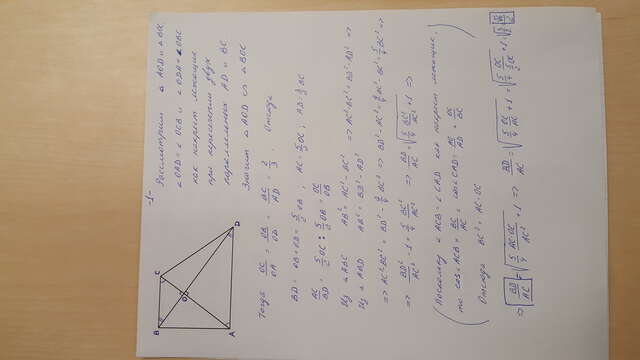 -1-
B C
O
A D
Рассмотрим △ AOD и △ BOC.
∠OAD = ∠ OCB и ∠ ODA = ∠OBC
как накрест лежащие
при пересечении двух
параллельных AD и BC
Значит △ AOD ∾ △ BOC
Тогда OC/OA = OB/OD = BC/AD = 2/3. Откуда
BD = OB+OD = 5/2 OB ; AC = 5/2 OC ; AD = 3/2 BC
AC/BD = 5/2 OC : 5/2 OB = OC/OB
Из △ ABC AB² = AC² - BC² => AC² - BC² = BD² - AD² =>
Из △ ABD AB² = BD² - AD²
=> AC² - BC² = BD² - 9/4 BC² => BD² - AC² = 9/4 BC² - BC² = 5/4 BC² =>
=> BD²/AC² - 1 = 5/4 BC²/AC² => BD/AC = √(5/4 BC²/AC² + 1) =>
Поскольку ∠ ACB = ∠ CAD как накрест лежащие,
то cos∠ACB = BC/AC = cos∠CAD =
Откуда BC² = AC·OC
=> BD/AC = √(5/4 AC·OC/AC² + 1) => BD/AC = √(5/4 OC/AC + 1) = √(5/4 OC/(5/2 OC) + 1) =